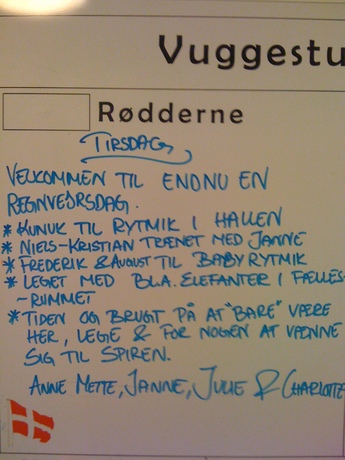 Vuggestu
Rødderne
TIRSDAG
VELKOMMEN TIL ENDNU EN
REGNVEJRSDAG.
* KUNUK TIL RYTMIK I HALLEN
* NIELS-KRISTIAN TRÆNET MED JANNE
* FREDERIK & AUGUST TIL BABYRYTMIK
* LEGET MED BLA. ELEFANTER I FÆLLES-
-RUMMET
* TIDEN OG BRUGT PÅ AT "BARE" VÆRE
HER, LEGE & FOR NOGEN AT VÆNNE
SIG TIL SPIREN.
ANNE METTE, JANNE, JULIE & CHARLOTTE